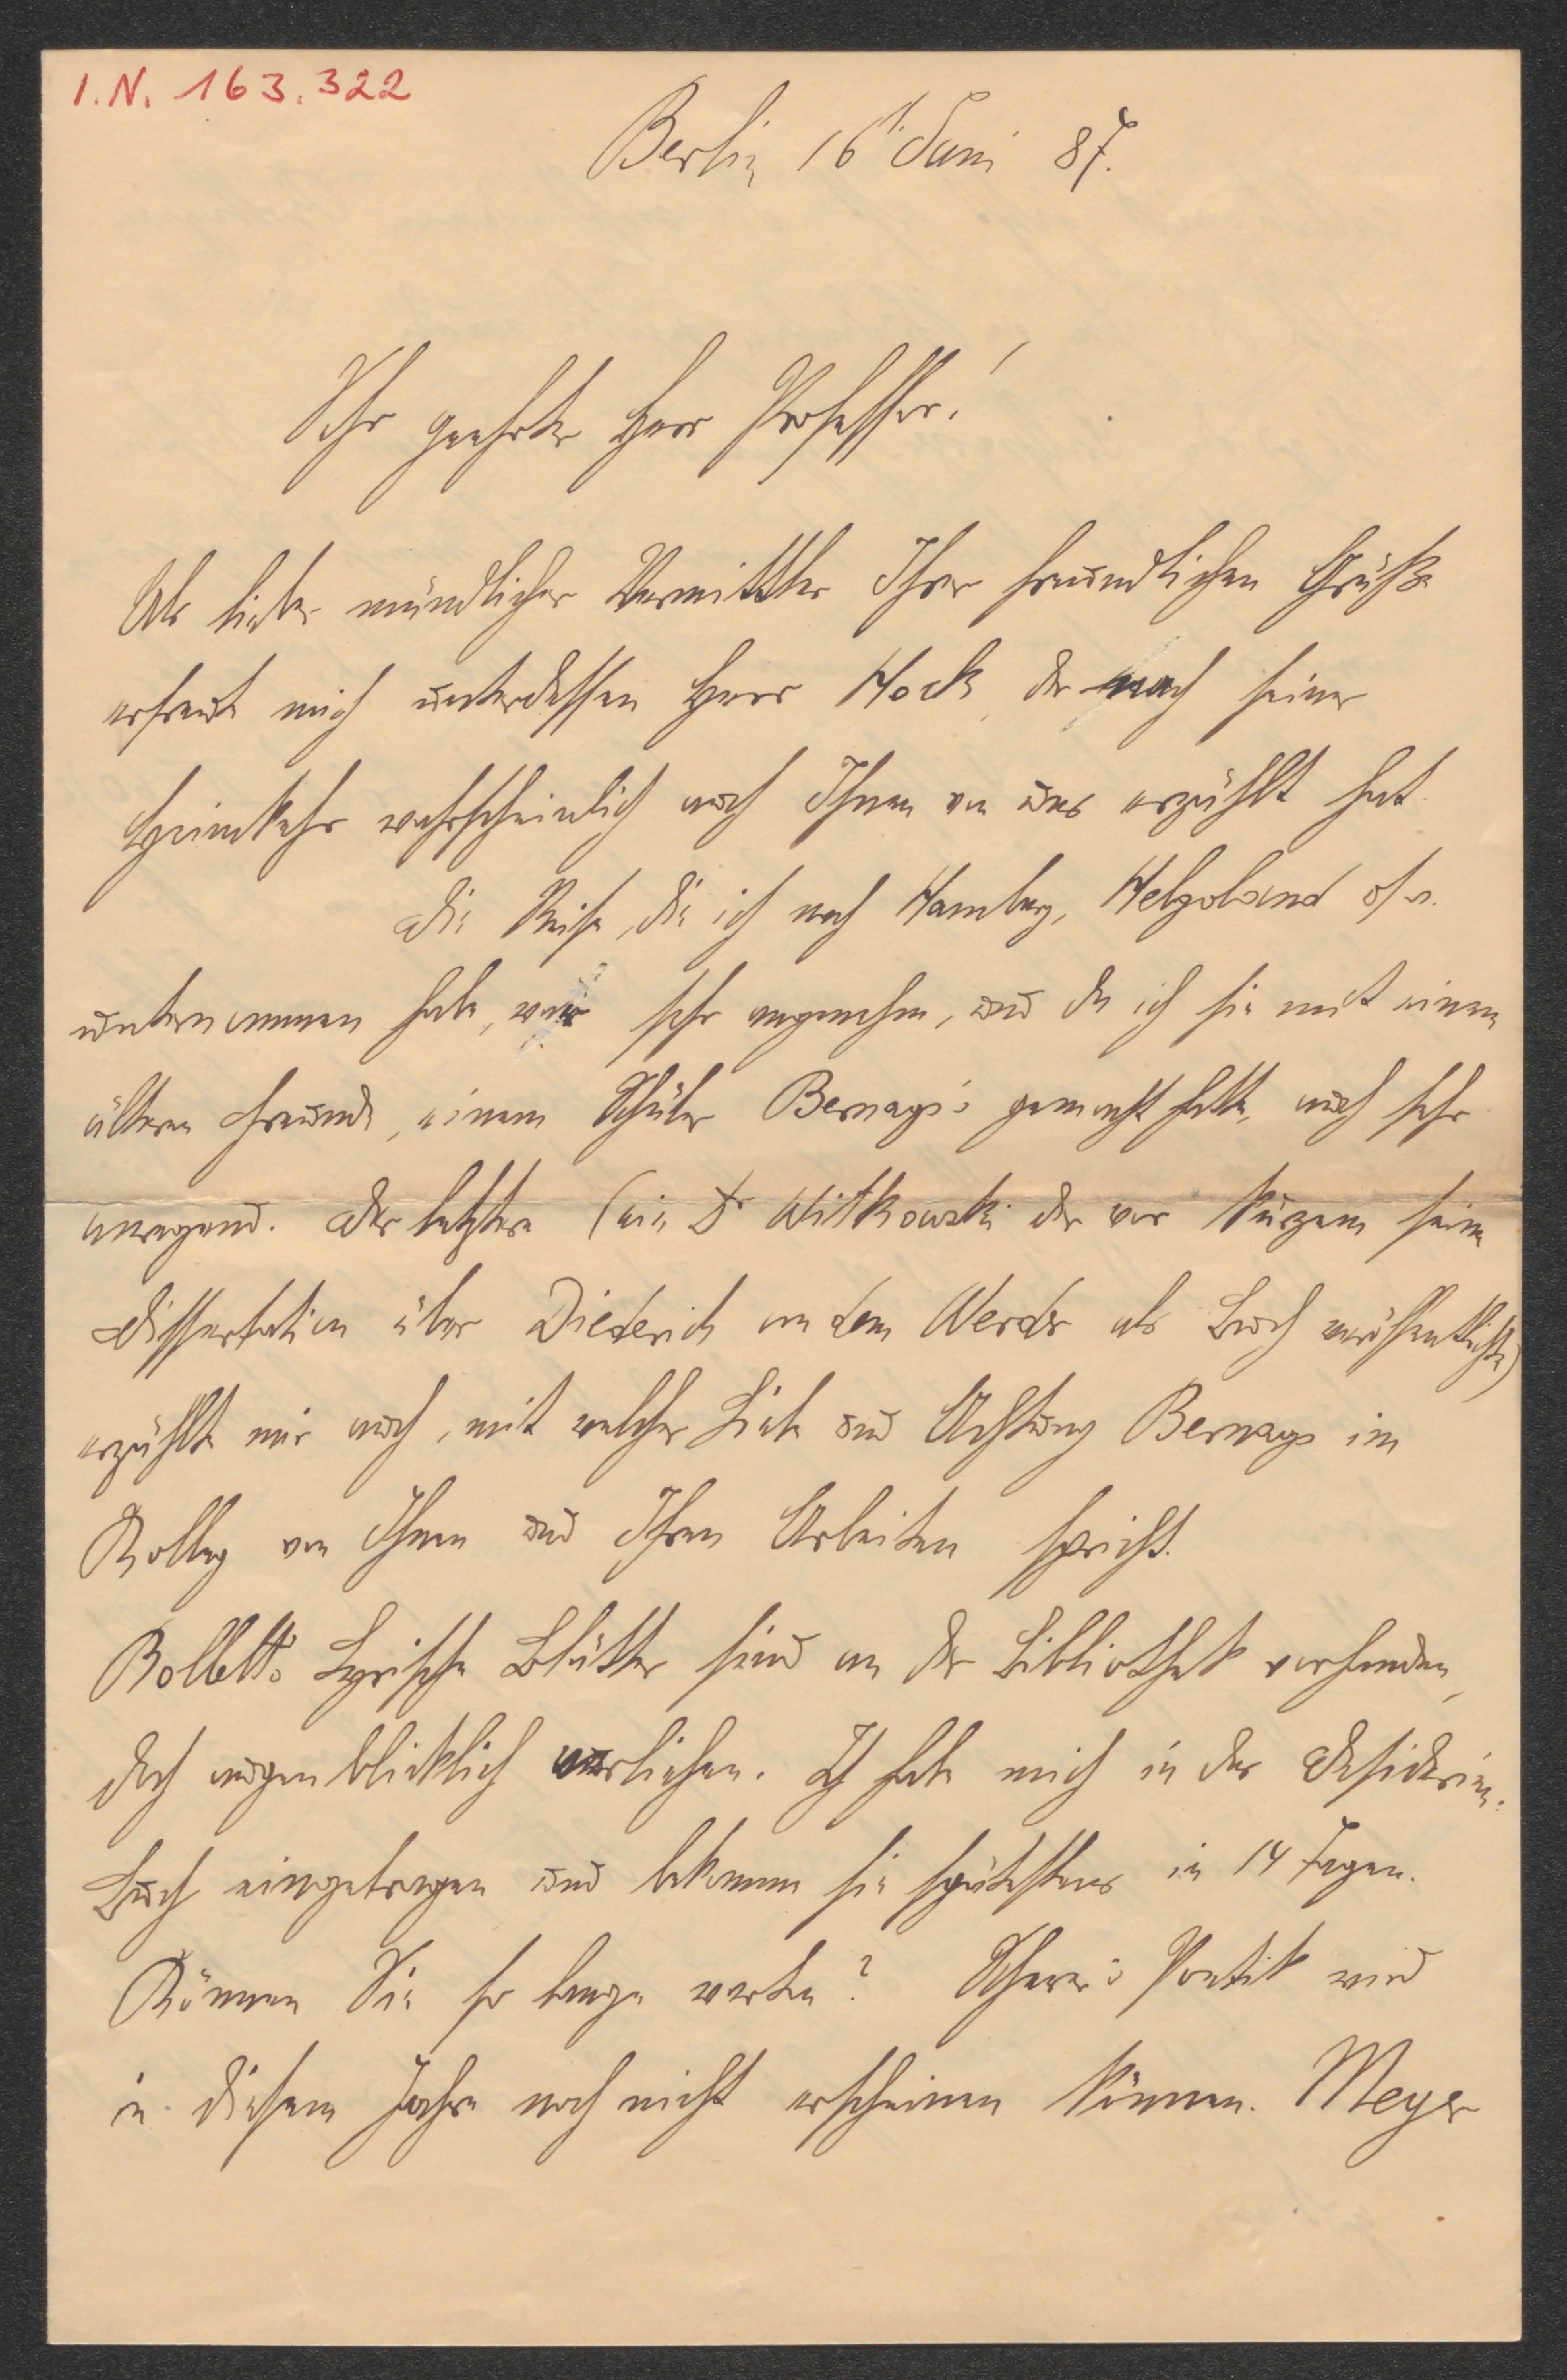 I.N. 163.322
Berlin 16t. Juni 87.
Sehr geehrter Herr Professor!
Als lieber mündlicher Vermittler Ihrer freundlichen Grüße
erfreute mich unterdessen Herr Hock, der nach seiner
Heimkehr wahrscheinlich auch Ihnen von uns erzählt hat.
Die Reise, die ich nach Hamburg, Helgoland
unternommen habe, war sehr angenehm, und da ich sie mit einem
älteren Freunde, einem Schüler Bernays's gemacht hatte, auch sehr
anregend. Der letztere (ein Dr Witkowski der vor kurzem seine
Dissertation über Diederich von dem Werder als Buch veröffentlichte)
erzählte mir auch, mit welcher Liebe und Achtung Bernays im
Kolleg von Ihnen und Ihren Arbeiten spricht.
Rollett's Lyrische Blätter sind an der Bibliothek vorhanden,
doch augenblicklich verliehen. Ich habe mich in das Desiderien-
Buch eingetragen und bekomme sie spätestens in 14 Tagen.
Können Sie so lange warten? Scherer's Poetik wird
in diesem Jahre noch nicht erscheinen können. Meyer